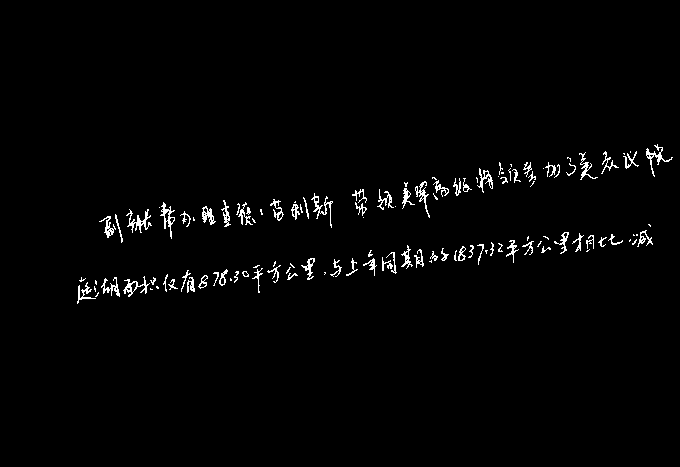 副帮办理查德·劳利斯 带领美军高级将领参加了美众议院
庭湖面积仅有878.30平方公里,与上年同期的1837.32平方公里相比,减